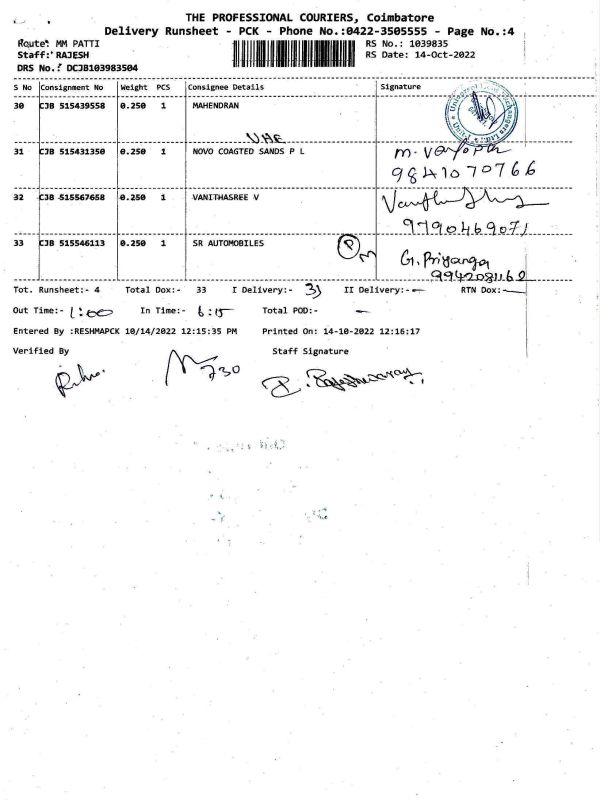 THE PROFESSIONAL COURIERS, Coimbatore
Delivery Runsheet - PCK - Phone No.:0422-3505555 - Page No.:4
Route: MM PATTI RS No.: 1039835
Staff: RAJESH RS Date: 14-Oct-2022
DRS No.: DCJB103983504
S No Consignment No Weight PCS Consignee Details Signature
30 CJB 515439558 0.250 1 MAHENDRAN
31 CJB 515431350 0.250 1 NOVO COAGTED SANDS P L
9841070766
32 CJB 515567658 0.250 1 VANITHASREE V
9790469071
33 CJB 515546113 0.250 1 SR AUTOMOBILES P G. Priyanga
9942081168
Tot. Runsheet:- 4 Total Dox:- 33 I Delivery:- II Delivery:- — RTN Dox:- —
Out Time:- 1:00 In Time:- 6:15 Total POD:- —
Entered By :RESHMAPCK 10/14/2022 12:15:35 PM Printed On: 14-10-2022 12:16:17
Verified By Staff Signature
730